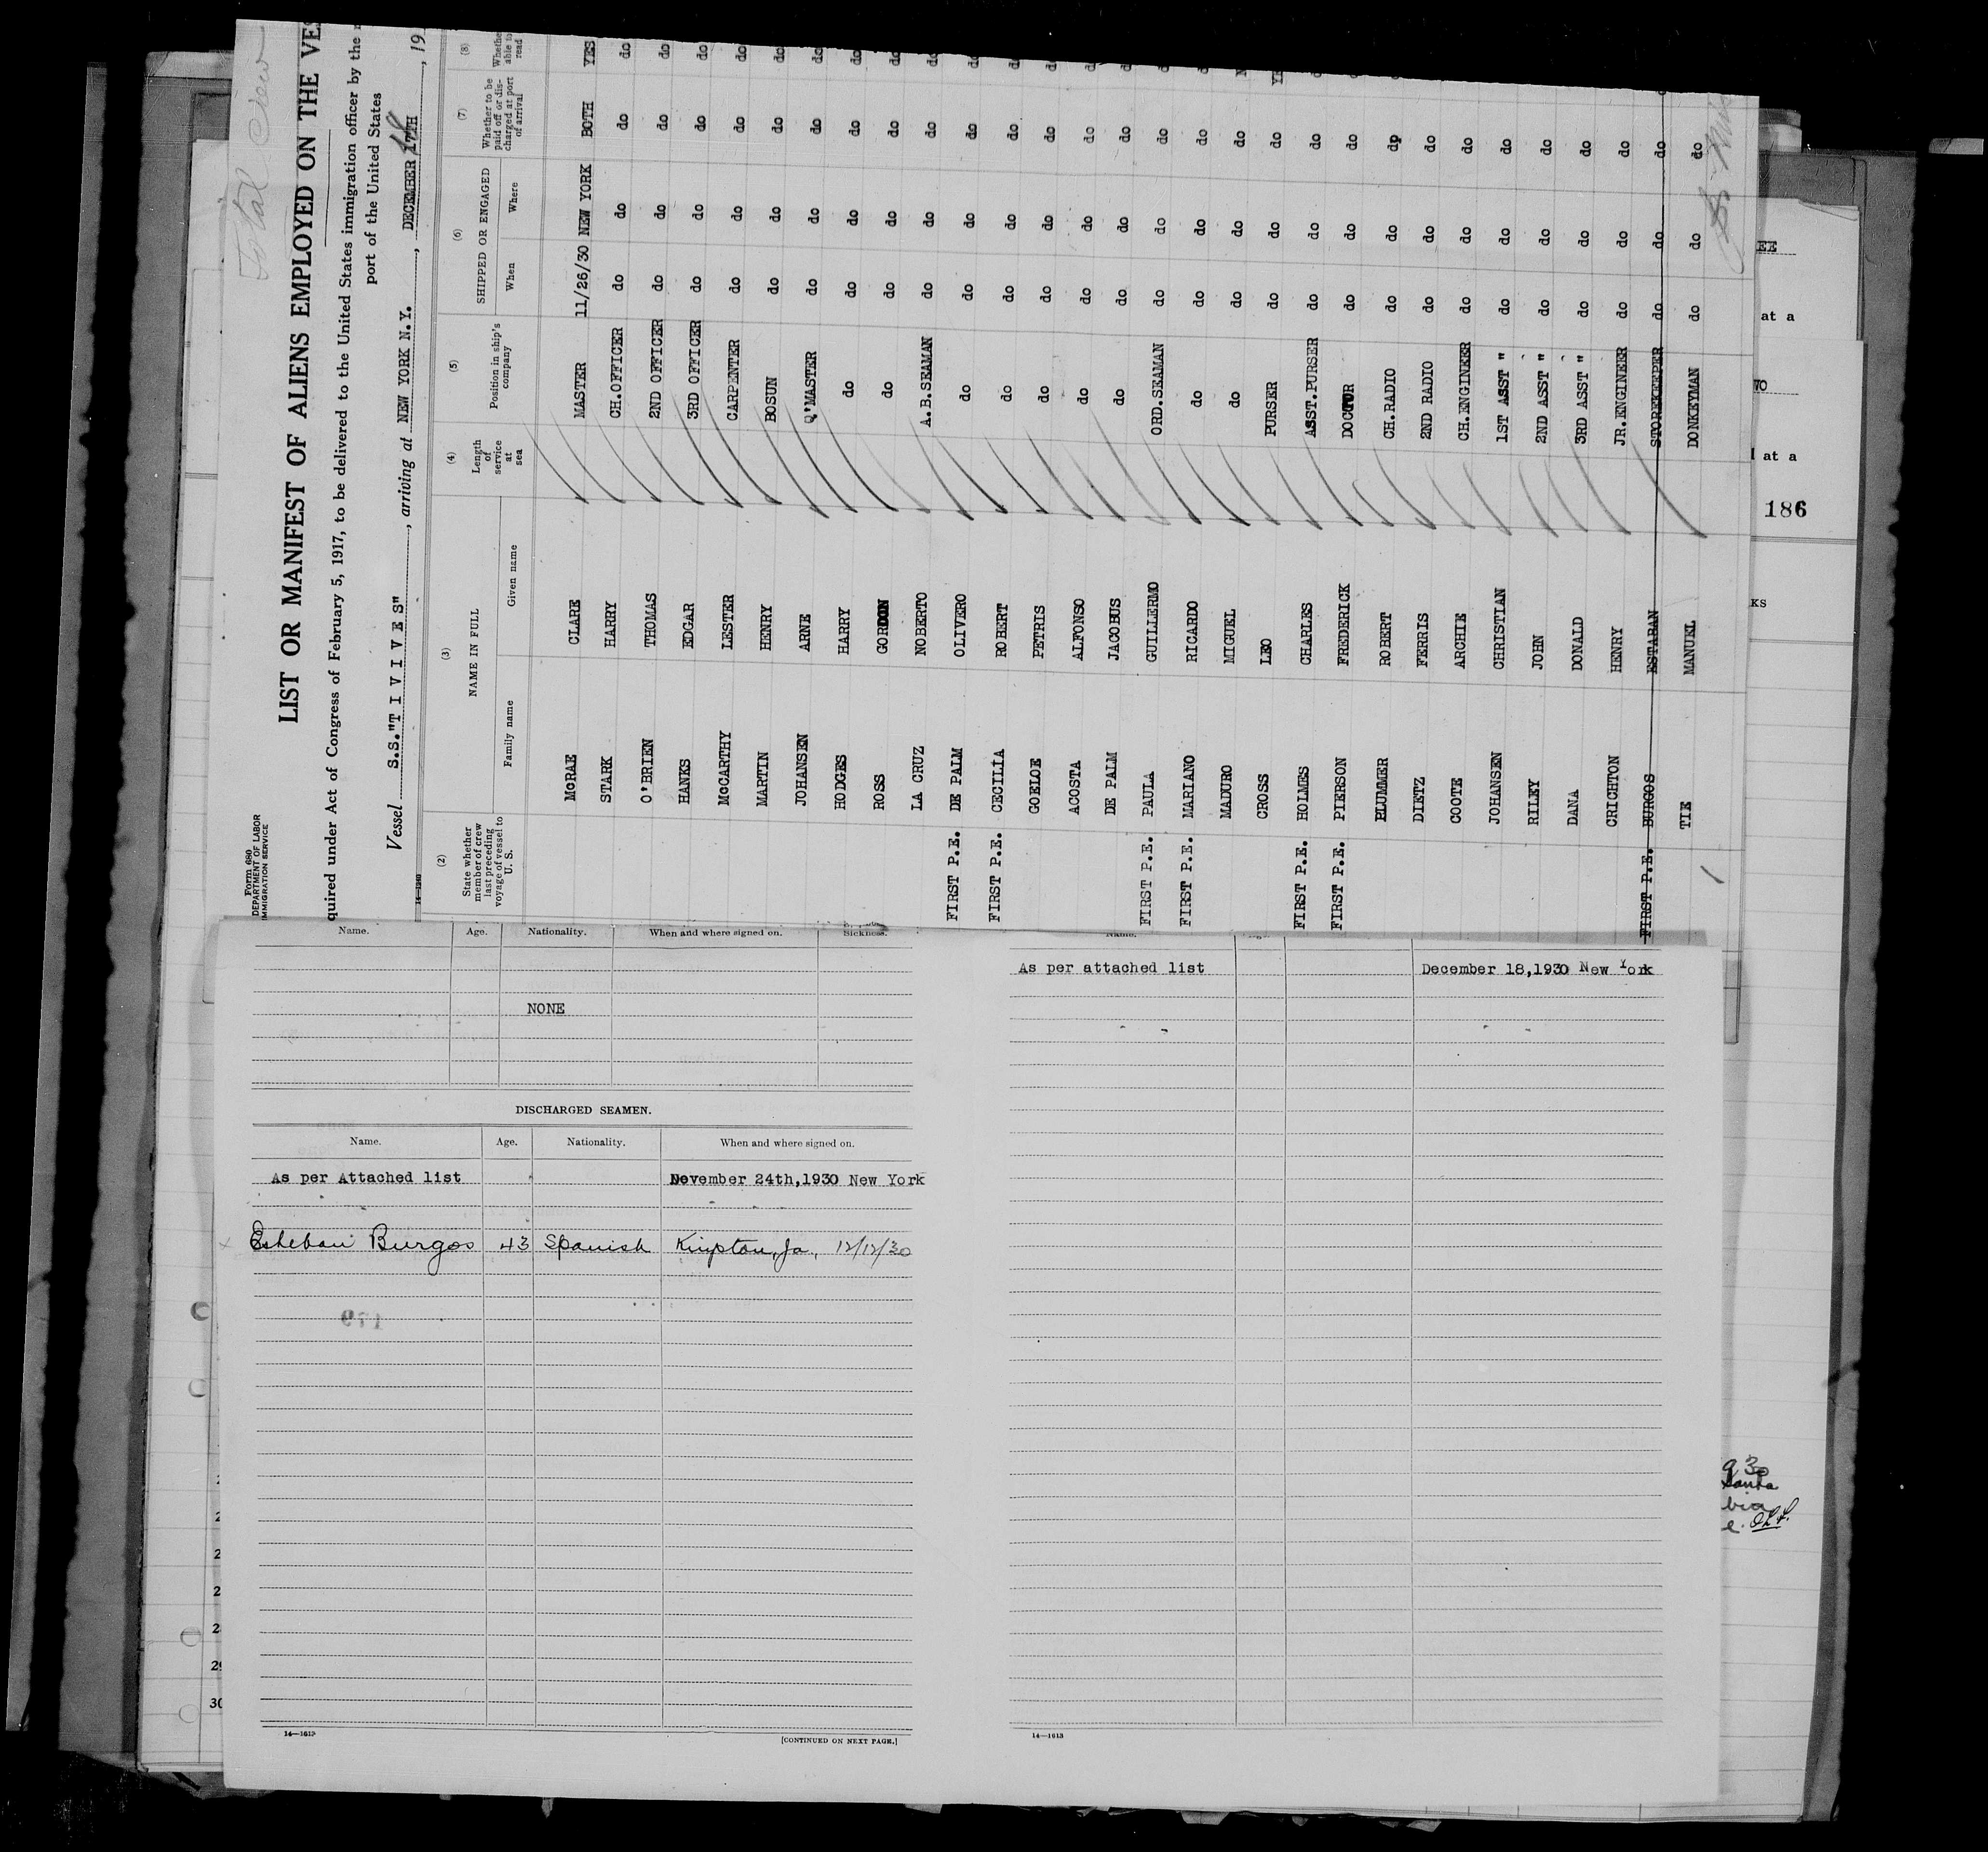 Total Crew
Form 680
DEPARTMENT OF LABOR
IMMIGRATION SERVICE
LIST OR MANIFEST OF ALIENS EMPLOYED ON THE
quired under Act of Congress of February 5, 1917, to be delivered to the United States immigration officer by the
port of the United States
Vessel S.S."T I V I V E S", arriving at NEW YORK N.Y., DECEMBER 17TH, 19
14-1240
(2) (3) (4) (5) (6) (7) (8)
State whether member of crew last preceding voyage of vessel to U. S. NAME IN FULL Family name Given name Length of service at sea Position in ship's company SHIPPED OR ENGAGED When Where Whether to be paid off or discharged at port of arrival Whether able to read
McRAE CLARE MASTER 11/26/30 NEW YORK BOTH YES
STARK HARRY CH.OFFICER do do do do
O'BRIEN THOMAS 2ND OFFICER do do do do
HANKS EDGAR 3RD OFFICER do do do do
McCARTHY LESTER CARPENTER do do do do
MARTIN HENRY BOSUN do do do do
JOHANSEN ARNE Q'MASTER do do do do
HODGES HARRY do do do do do
ROSS GORDON do do do do do
LA CRUZ NOBERTO A.B.SEAMAN do do do do
FIRST P.E. DE PALM OLIVERO do do do do
FIRST P.E. CECILIA ROBERT do do do do
GOELOE PETRIS do do do do
ACOSTA ALFONSO do do do do
DE PALM JACOBUS do do do do
FIRST P.E. PAULA GUILLERMO ORD.SEAMAN do do do
FIRST P.E. MARIANO RICARDO do do do do
MADURO MIGUEL do do do do
CROSS LEO PURSER do do do
FIRST P.E. HOLMES CHARLES ASST.PURSER do do do
FIRST P.E. PIERSON FREDERICK DOCTOR do do do
PLUMMER ROBERT CH.RADIO do do do
DIETZ FERRIS 2ND RADIO do do do
COOTE ARCHIE CH.ENGINEER do do do
JOHANSEN CHRISTIAN 1ST ASST " do do do
RILEY JOHN 2ND ASST " do do do
DANA DONALD 3RD ASST " do do do
CRICHTON HENRY JR.ENGINEER do do do
FIRST P.E. BURGOS ESTABAN STOREKEEPER do do do
TIE MANUEL DONKEYMAN do do do
at a
at a
186
KS
Name. Age. Nationality. When and where signed on. Sickness.
NONE
DISCHARGED SEAMEN.
Name. Age. Nationality. When and where signed on.
As per Attached list November 24th,1930 New York
Esteban Burgos 43 Spanish Kingston, Ja, 12/12/30
14—1613
[CONTINUED ON NEXT PAGE.]
As per attached list December 18,1930 New York
14—1613
29
30